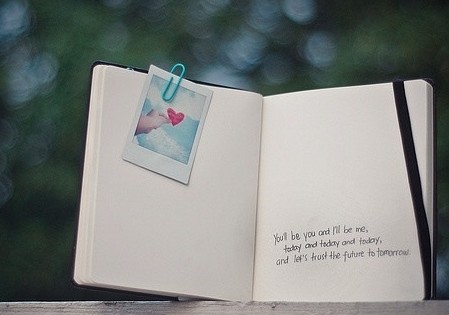 You'll be you and I'll be me,
today and today and today,
and let's trust the future to tomorrow